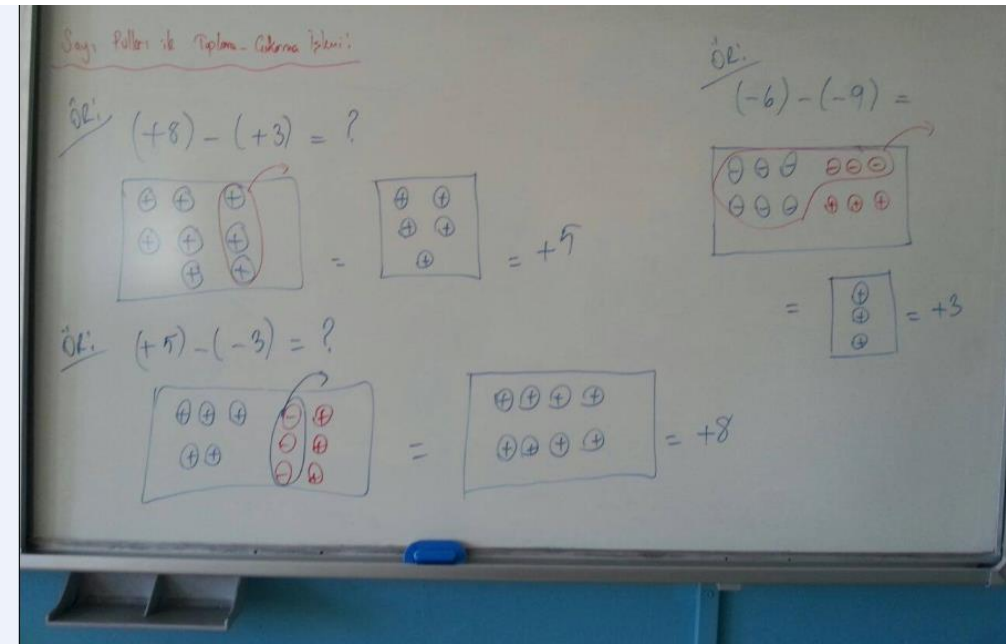 Sayı Pulları ile Toplama-Çıkarma İşlemi:
ÖR: (+8) - (+3) = ?
+ + +
+ + +
+ +
=
+ +
+ +
+
= +5
ÖR: (+5) - (-3) = ?
+ + + - +
+ + - +
- +
=
+ + + +
+ + + +
= +8
ÖR:
(-6) - (-9) =
- - - - - -
- - - + + +
=
+
+
+
= +3